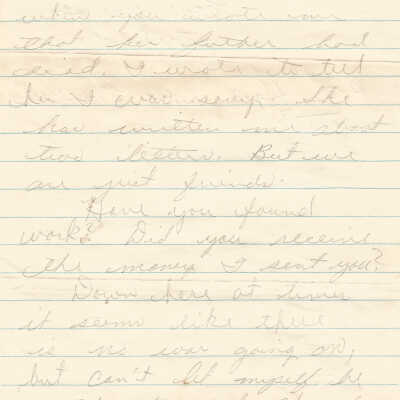 when you wrote me
that her father had
died. I wrote to tell
her I was sorry. She
has written me about
two letters. But we
are just friends.
Have you found
work? Did you receive
the money I sent you?
Down here at times
it seems like there
is no war going on,
but can't let myself be